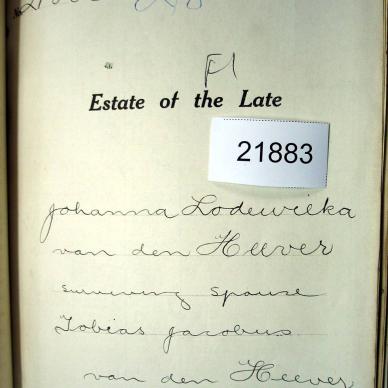 Fl
Estate of the Late
21883
Johanna Lodewicka
van den Heever
surviving spouse
Tobias Jacobus
van den Heever